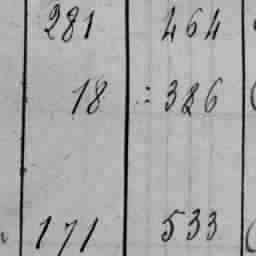 281 464
18 : 386
171 533